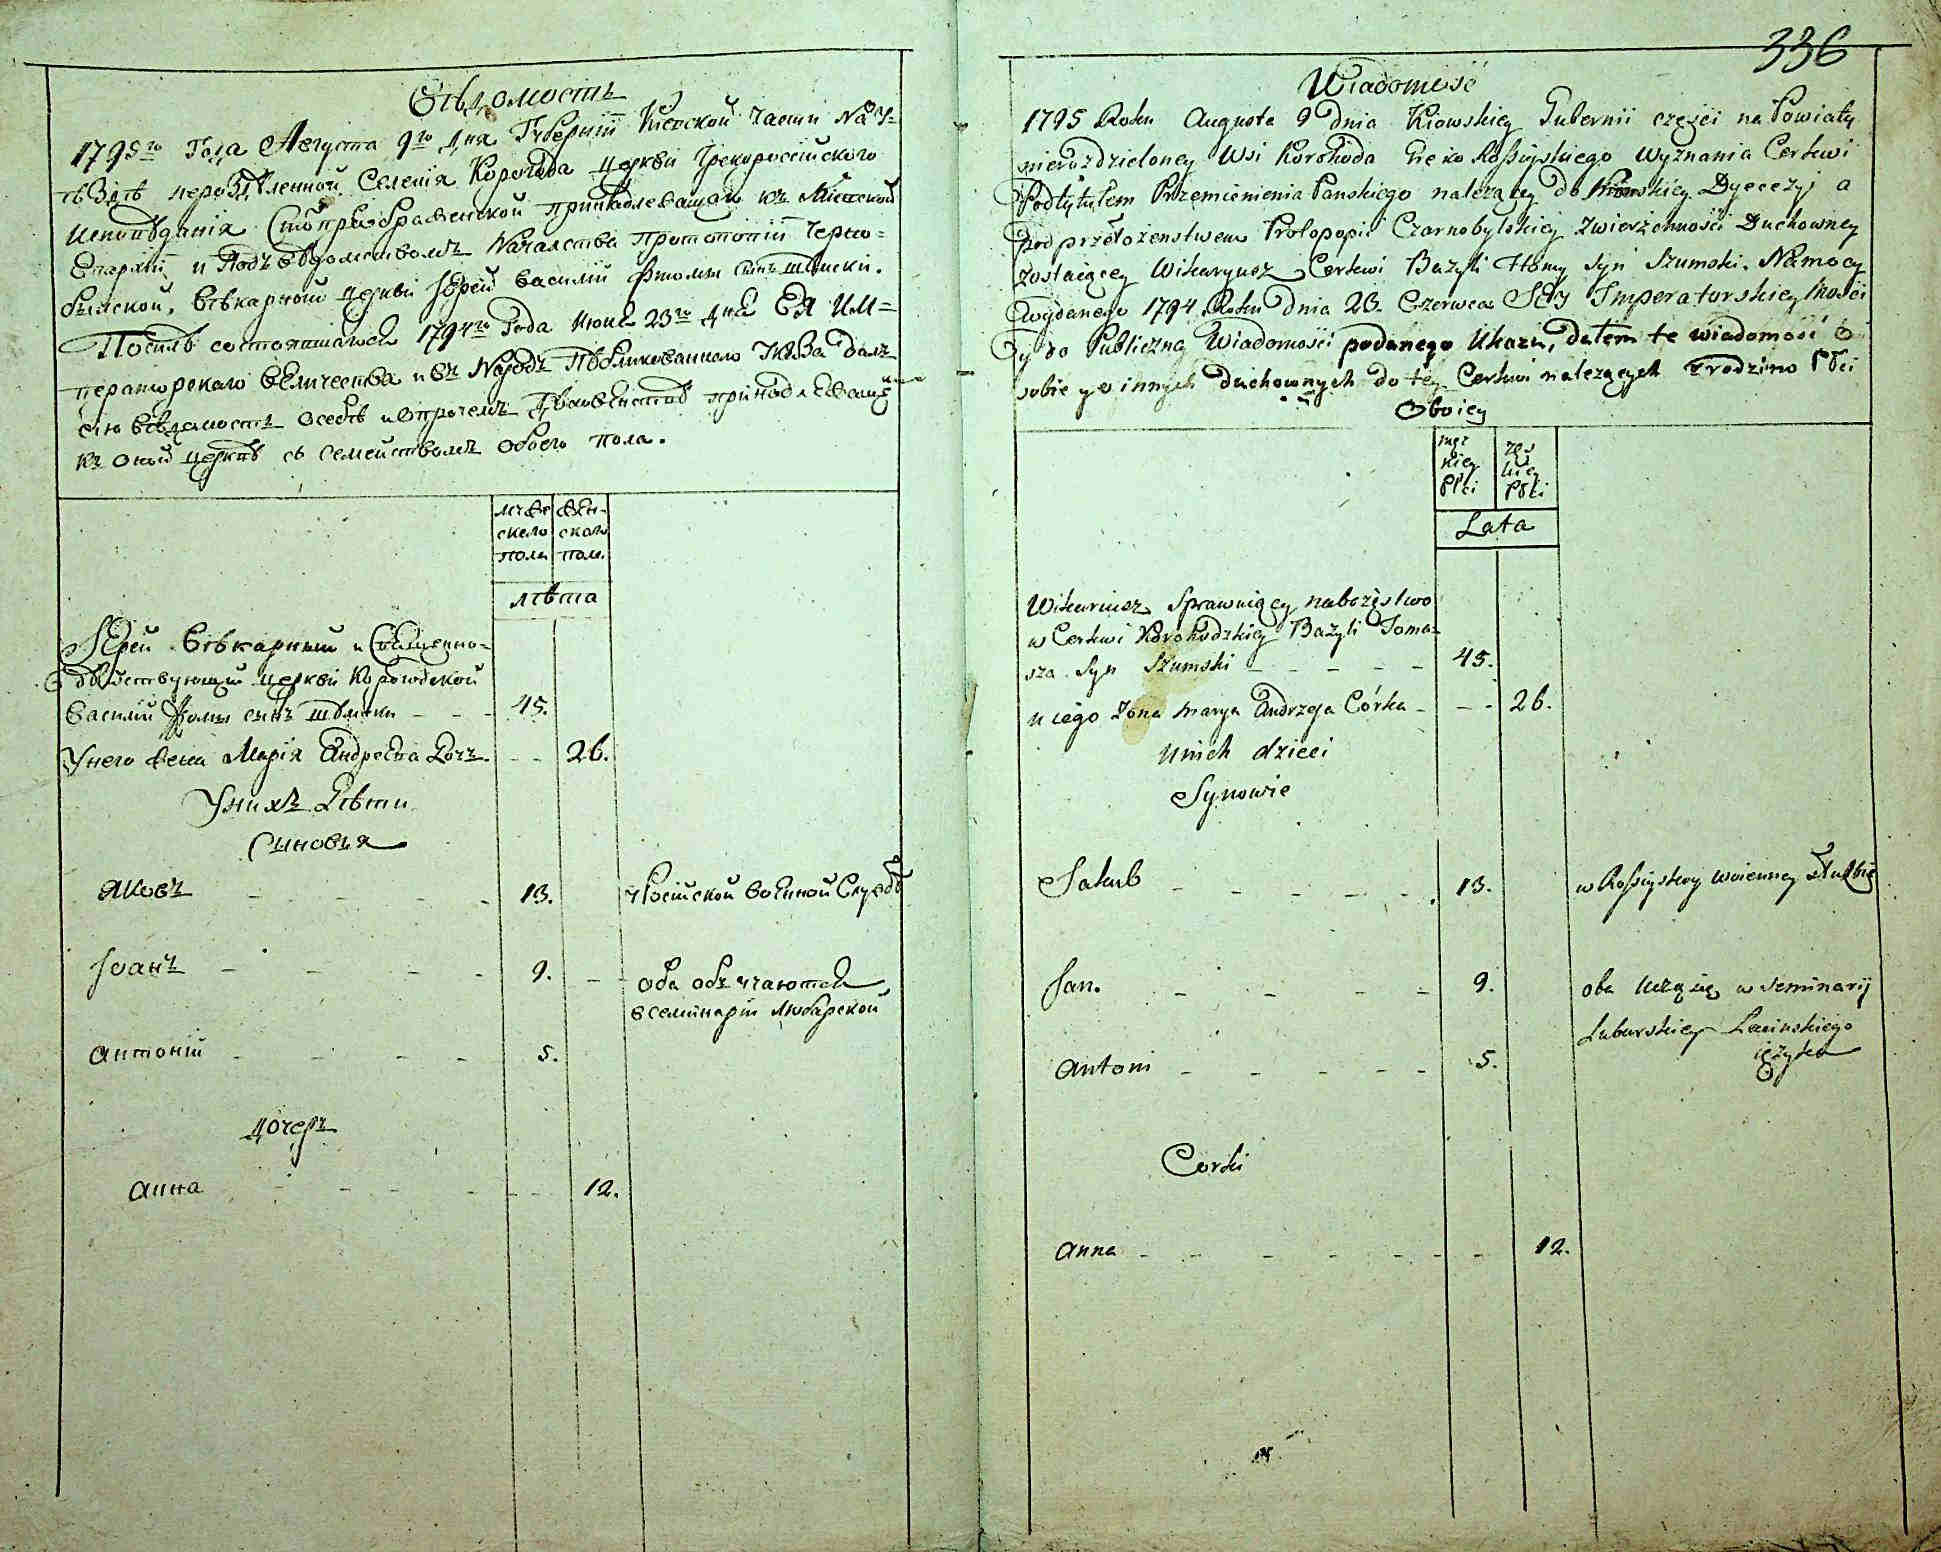 Вѣдомость
1795го Года Августа 9го дня Губернiи Кiевской Части На У=
ѣзди нероздѣленной Селенiя Корогода церкви Грекороссiйского
Исповѣданiя Сто преображенской принадлежащой къ Кiевской
Епархiи и Подъ вѣдомствомъ Началства Протопопiи Черно=
былской, Вѣкарный церкви Iерей Василiй Фомы сынъ Шумски.
Посилѣ состоявшагося 1794го Года Июня 23го дня ЕЯ ИМ=
ператорскаго величества и въ Народъ Публикованнаго Указа далъ
сiю вѣдомость о себѣ и опрочемъ Духовенствѣ принадлежащемъ
къ оной церквѣ съ семействомъ обоего пола.
муже
ского
пола
жен-
ского
пола
лѣта
Iерей Вѣкарный и Священно-
дѣйствующiй церкви Корогодской
Василiй Фомы сынъ Шумски - - - 45.
Унего жена Марiя Андреева дочъ. - - 26.
Унихъ Дѣти
Сыновья
Яковъ - - - - 13. у Росiйской военной Службѣ
Iоанъ - - - - 9. - - оба обучаются
всеминарiи Любарской
Антонiй - - - - 5.
Дочеръ
Анна - - - - - - 12.
336
Wiadomość
1795 Roku Augusta 9 dnia Kiowskiey Gubernii części na Powiaty
nierozdzieloney Wsi Korohoda Greko Rossyiskiego Wyznania Cerkwi
Podtytułem Przemienienia Panskiego należącey do Kiowskiey Dyecezyi a
pod przełożenstwem Protopopii Czarnobylskiey Zwierzchności Duchowney
zostaiącey Wikaryusz Cerkwi Bazyli Tomy Syn Szumski. Na mocy
wydanego 1794 Roku dnia 23. Czerwca Jey Imperatorskiey Mości
y do Publiczney Wiadomości podanego Ukazu, dałem te wiadomość o
sobie y o innych duchownych do tey Cerkwi należących z rodziną Płci
Oboiey
męz
kiey
Płci
żes
kiey
Płci
Lata
Wikariusz Sprawuiący nabożęstwo
w Cerkwi Korohodzkiey Bazyli Toma-
sza Syn Szumski - - - - - 45.
u iego Żona Marya Andrzeja Córka - - - 26.
Unich dzieci
Synowie
Jakub - - - - - 13. w Rossyiskey woienney Służbie
Jan. - - - - 9. oba uczą się w Seminaryi
Lubarskiey Łacinskiego
ięzyka
Antoni - - - - - 5.
Corki
Anna - - - - - - - 12.